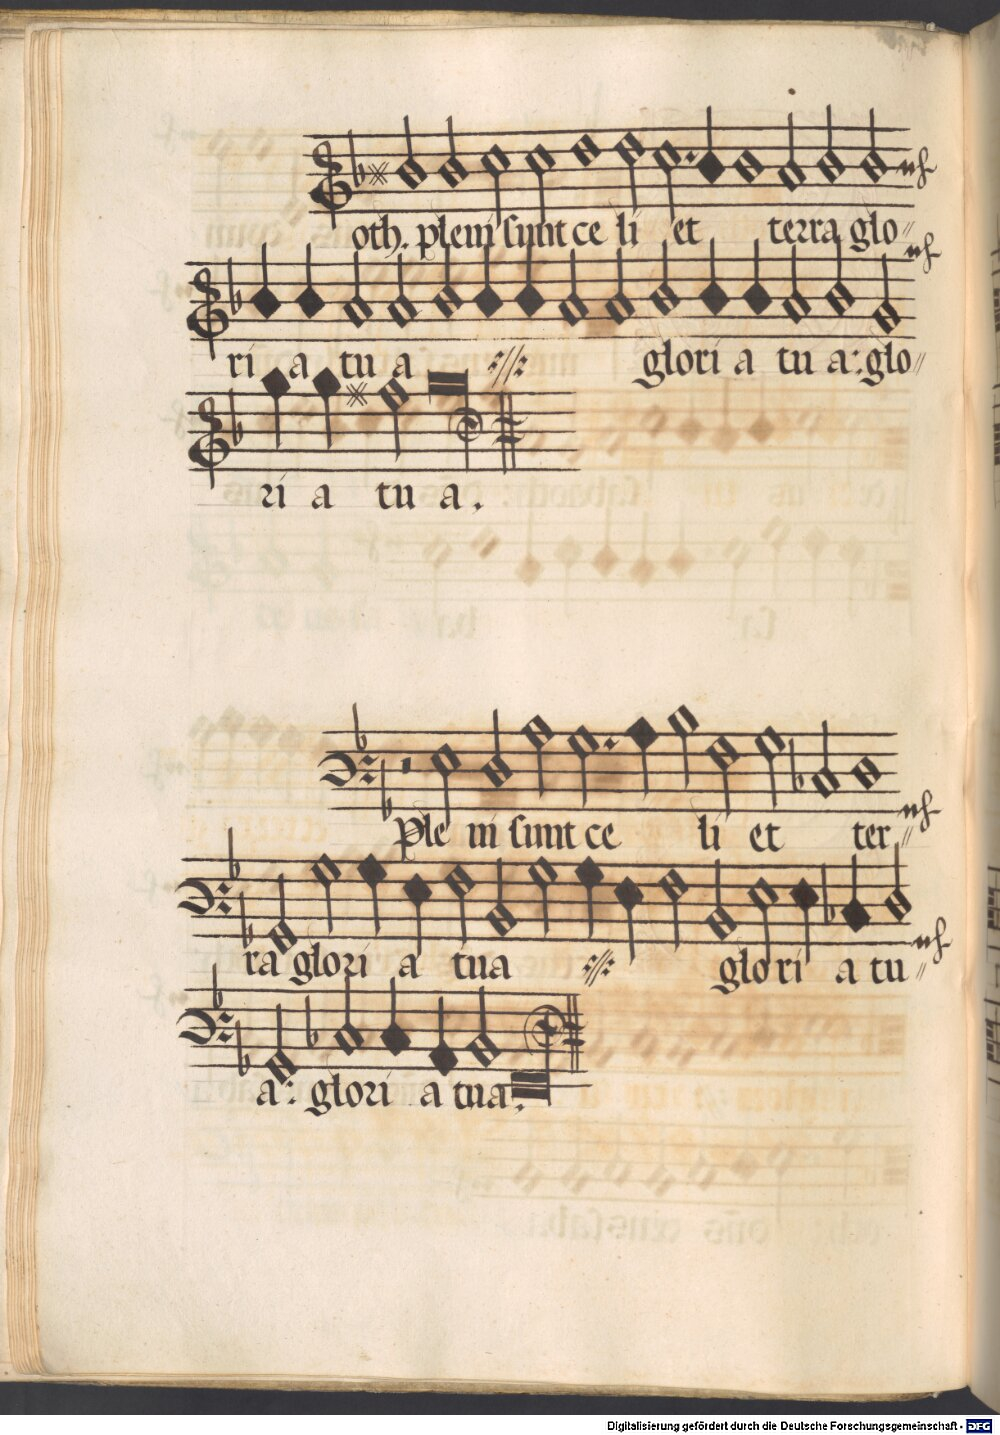 oth. pleni sunt ce li et terra glo⸗
ri a tu a :||: glori a tu a: glo⸗
ri a tu a.
Ple ni sunt ce li et ter⸗
ra glori a tua :||: glori a tu⸗
a: glori a tua.
Digitalisierung gefördert durch die Deutsche Forschungsgemeinschaft - DFG